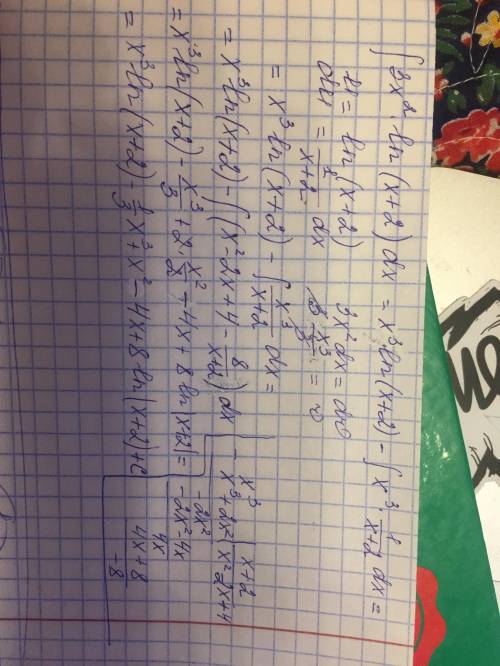 ∫3x²·ln(x+2)dx = x³ln(x+2) - ∫x³·1/(x+2) dx =
u = ln(x+2) 3x²dx = dv
du = 1/(x+2) dx 3 x³/3 = v
= x³ln(x+2) - ∫x³/(x+2) dx =
= x³ln(x+2) - ∫(x²-2x+4 - 8/(x+2)) dx
= x³ln(x+2) - x³/3 + 2·x²/2 - 4x + 8ln|x+2| =
= x³ln(x+2) - 1/3x³ + x² - 4x + 8·ln(x+2) + C
- x³ | x+2
x³+2x² | x²-2x+4
-2x²
-2x²-4x
4x
4x+8
-8